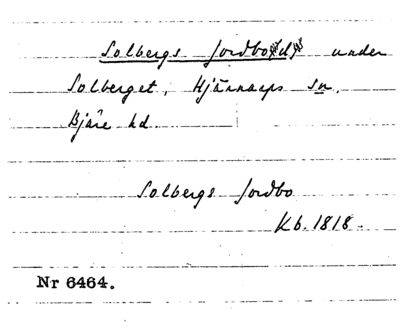 Solbergs Jordbo(d) under
Solberget, Hjärnarps sn.
Bjäre hd.
Solbergs Jordbo
Kb. 1818.
Nr 6464.